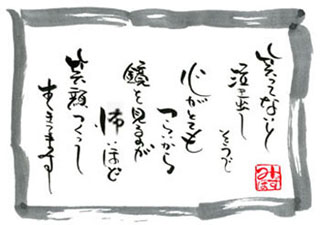 笑ってないと
泣き出し
そうで
心がとても
つらいから
鏡を見るのが
怖いほど
笑顔つくって
生きてます